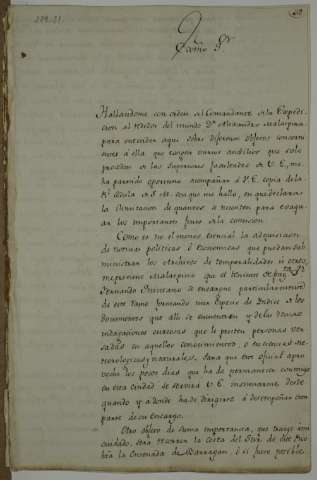 209-21
Exmo Sr
Hallandome con orden del Comandante de la Expedi-
cion al rededor del mundo Dn Alexandro Malaspina
para entender aqui sobre diferentes objetos concerni-
entes á ella que exigen varios auxilios que solo
penden de las Superiores facultades de V. E., me
ha parecido oportuno acompañar á V. E. copia de la
Rl Cedula de S. M. con que me hallo, en que declara
la de quantos se necesiten para evaqu-
ar los importantes fines de la comision.
Como es no el menos esencial la adquisicion
de noticias politicas ó Economicas que puedan sub
ministrar los Archivos de temporalidades ú otros,
me previene Malaspina que el Teniente de frag.ta Dn
Fernando Quintano se encargue particularmente
de este ramo formando una Especie de Indice de los
Documentos que alli se encuentran y de las demas
indagaciones curiosas que le presten personas ver-
sadas en aquellos conocimientos, ó en ciencias me-
teorologicas y naturales. Para que este oficial apro-
veche los pocos dias que ha de permanecer conmigo
en esta Ciudad se servirá V. E. insinuarme desde
quando y a donde ha de dirigirse á desempeñar esta
parte de su encargo.
Otro objeto de suma importancia, que traigo á mi
cuidado, es recorrer la Costa del Sur de este Rio
hta la Ensenada de Barragan, ó si fuere posible